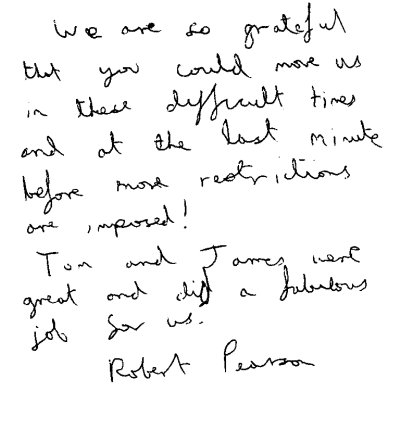 We are so grateful
that you could move us
in these difficult times
and at the last minute
before more restrictions
are imposed!
Tom and James were
great and did a fabulous
job for us.
Robert Pearson